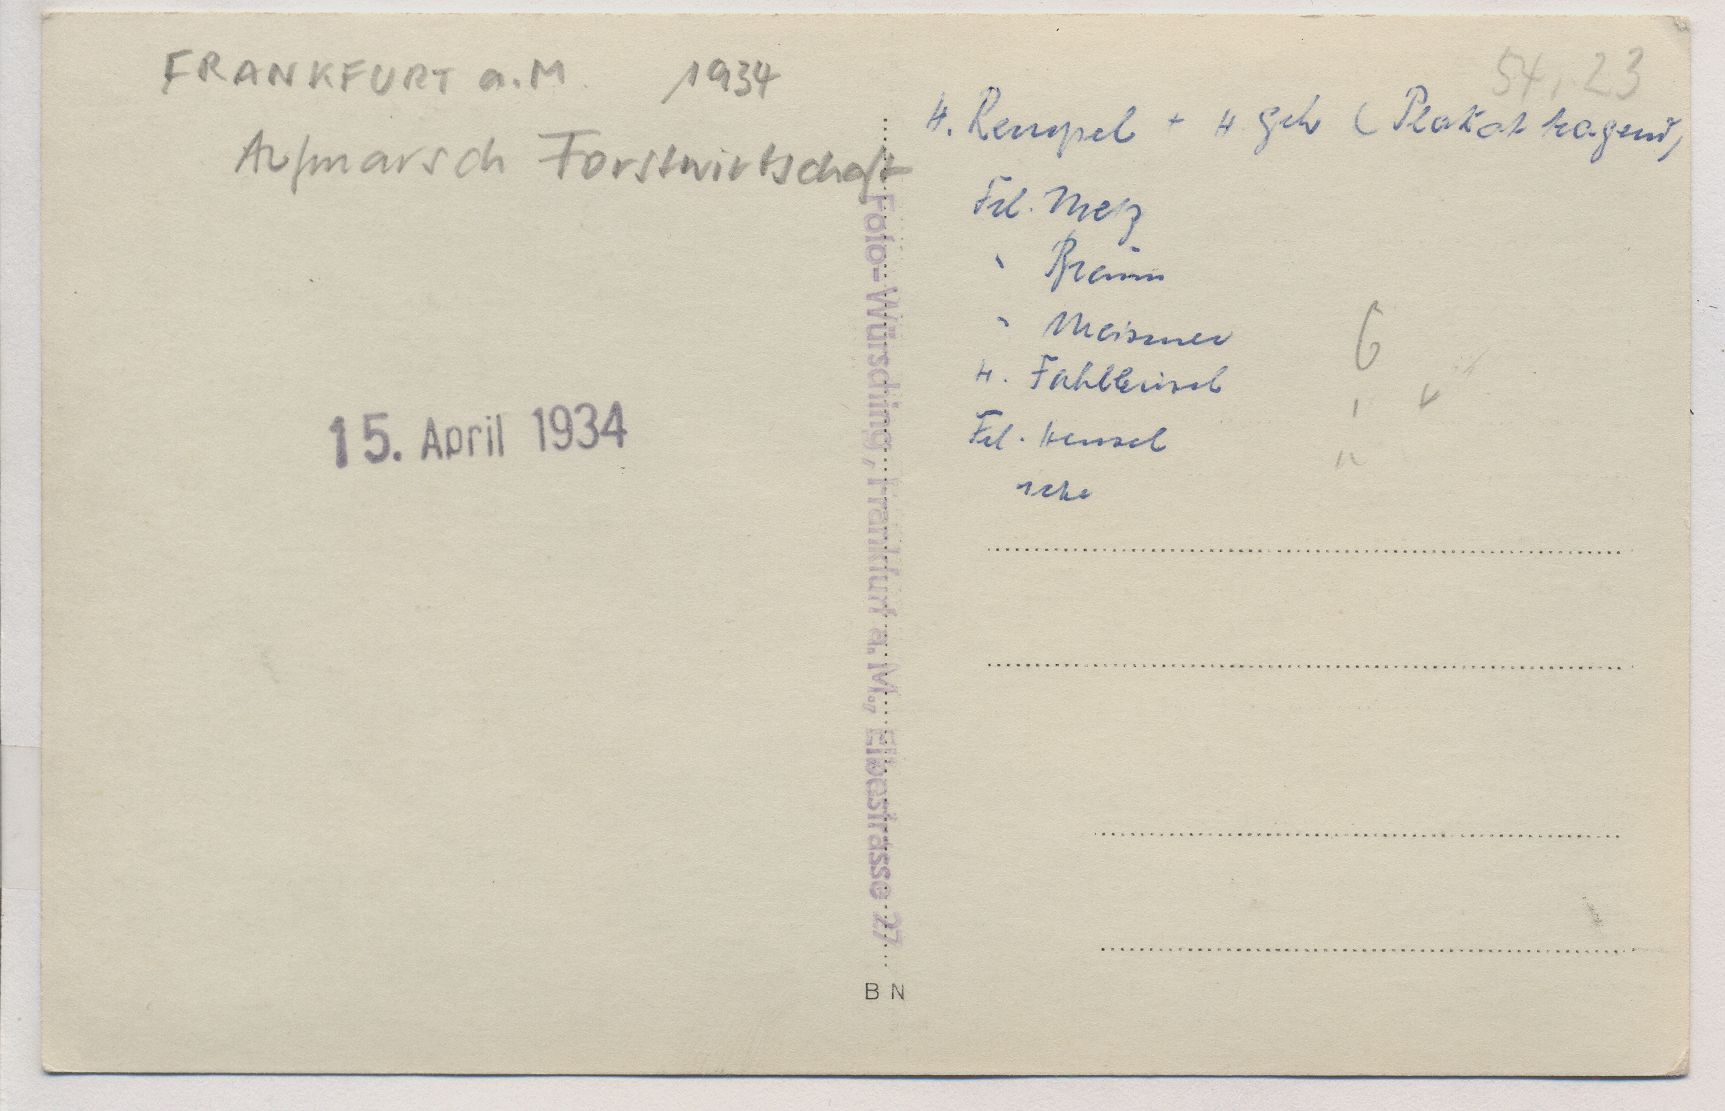 FRANKFURT a.M. 1934
Aufmarsch Forstwirtschaft
15. April 1934
Foto-Würsching, Frankfurt a. M., Elbestrasse 27
B N
54,23
H. Rempel + H (Plakat tragend)
Frl. Metz
" Braun
" Meisner
H.
Frl. Hensel
6